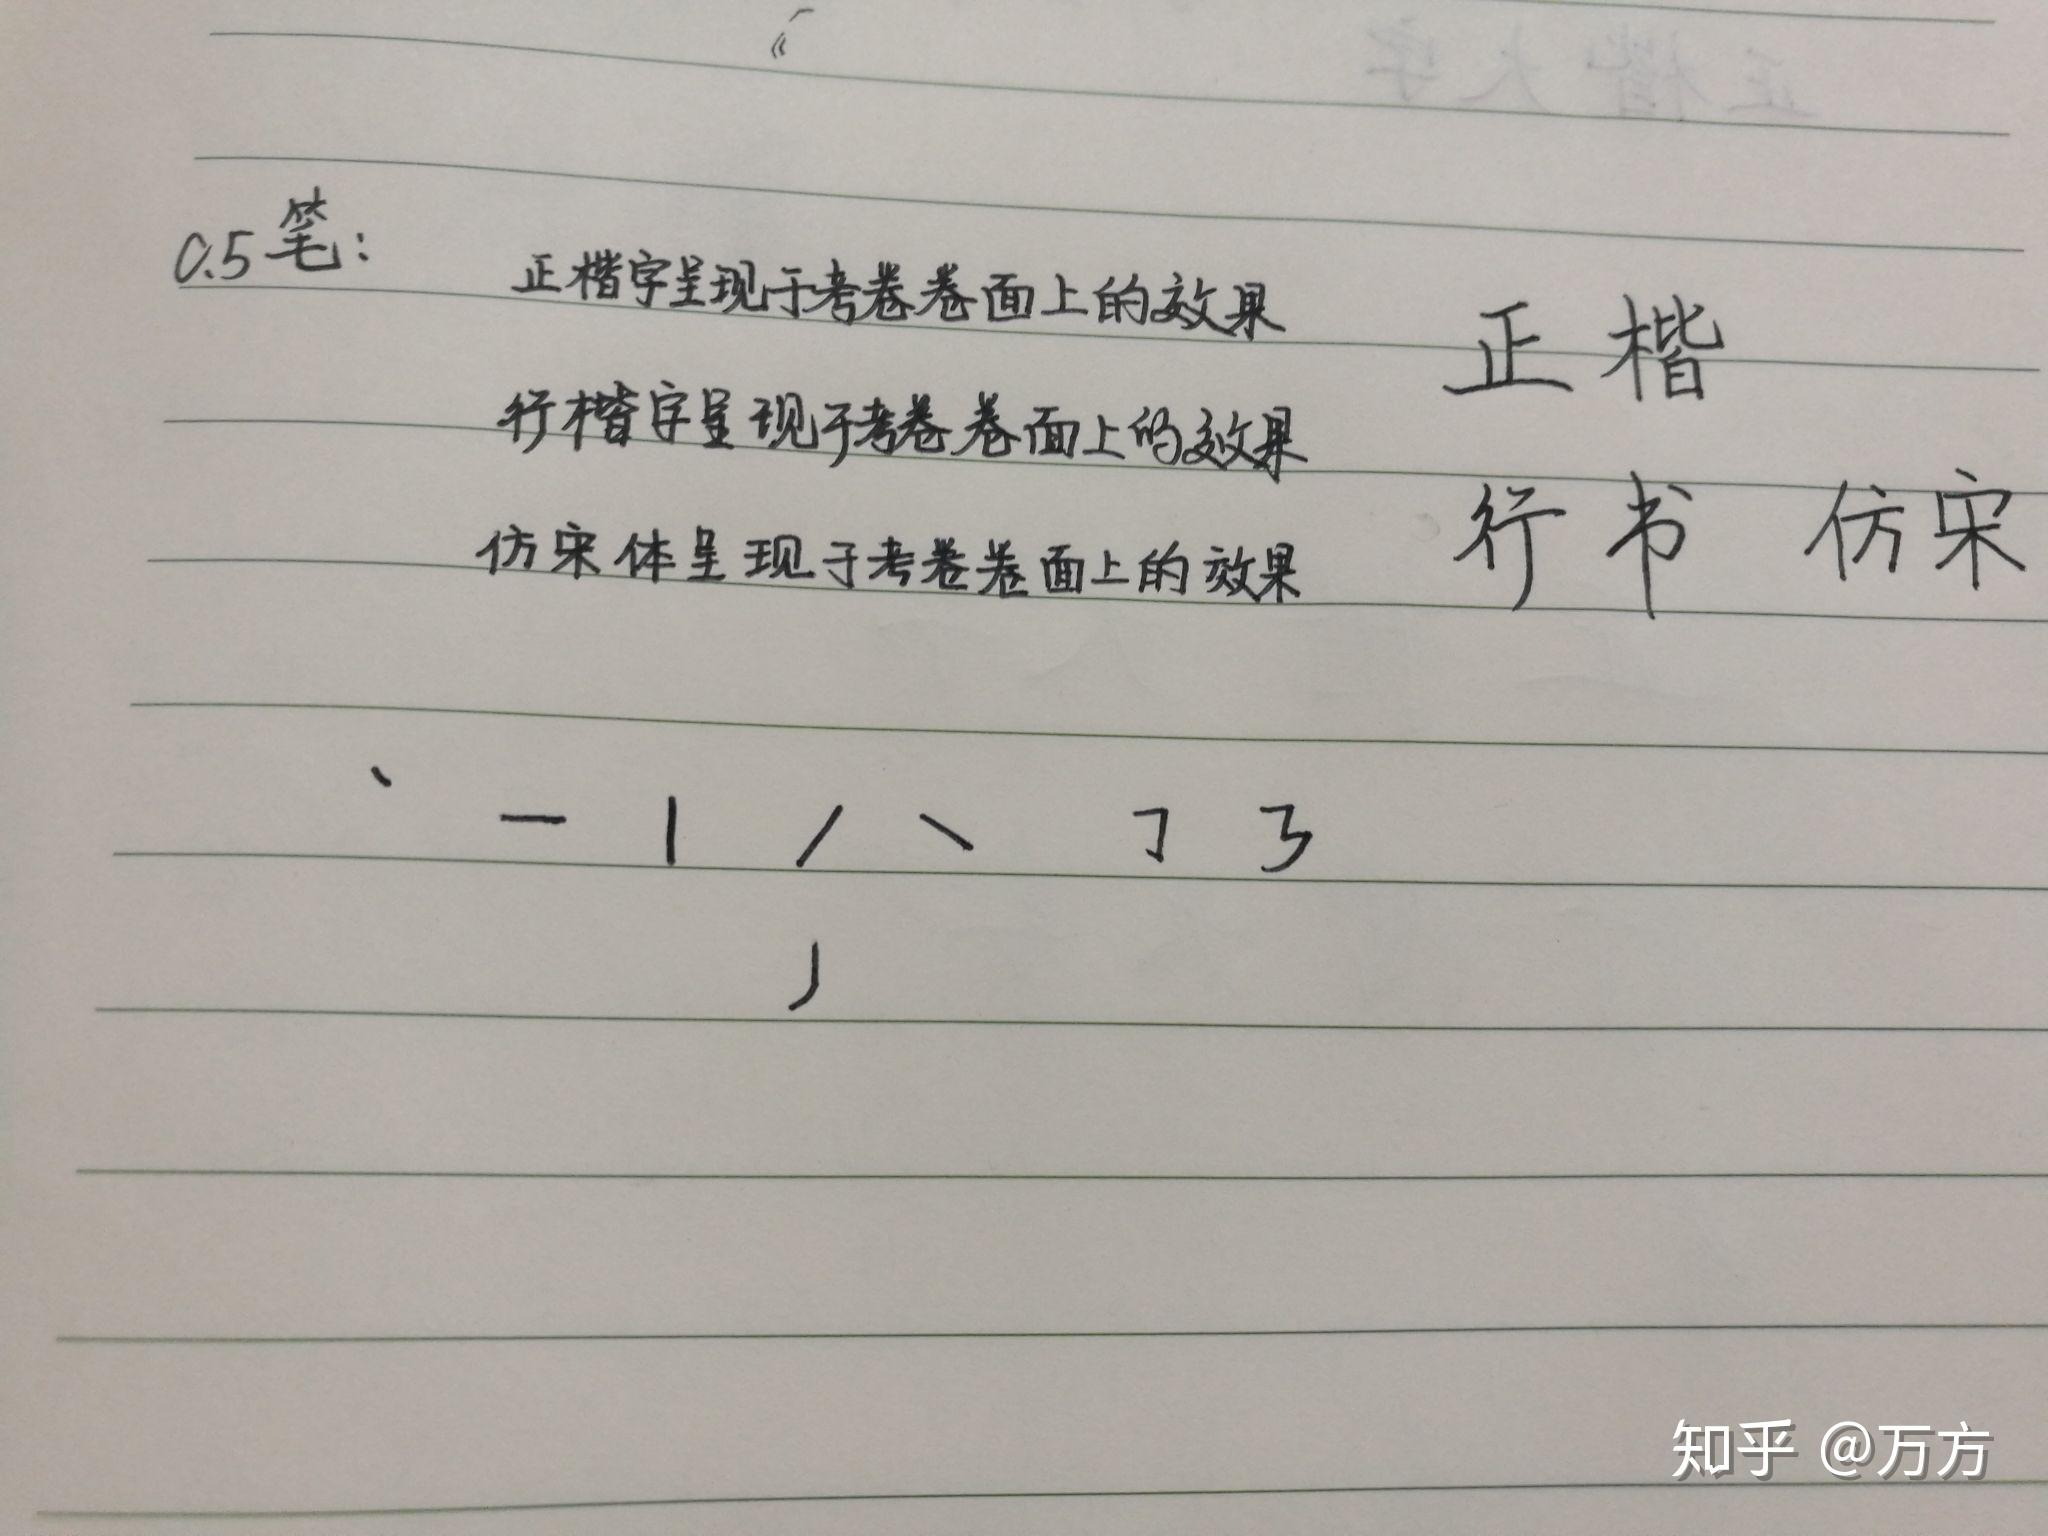 0.5笔：
正楷字呈现于考卷卷面上的效果
行楷字呈现于考卷卷面上的效果
仿宋体呈现于考卷卷面上的效果
正楷
行书 仿宋
丶 一 丨 丿 ㇏ ㇆ ㇋
丿
知乎 @万方